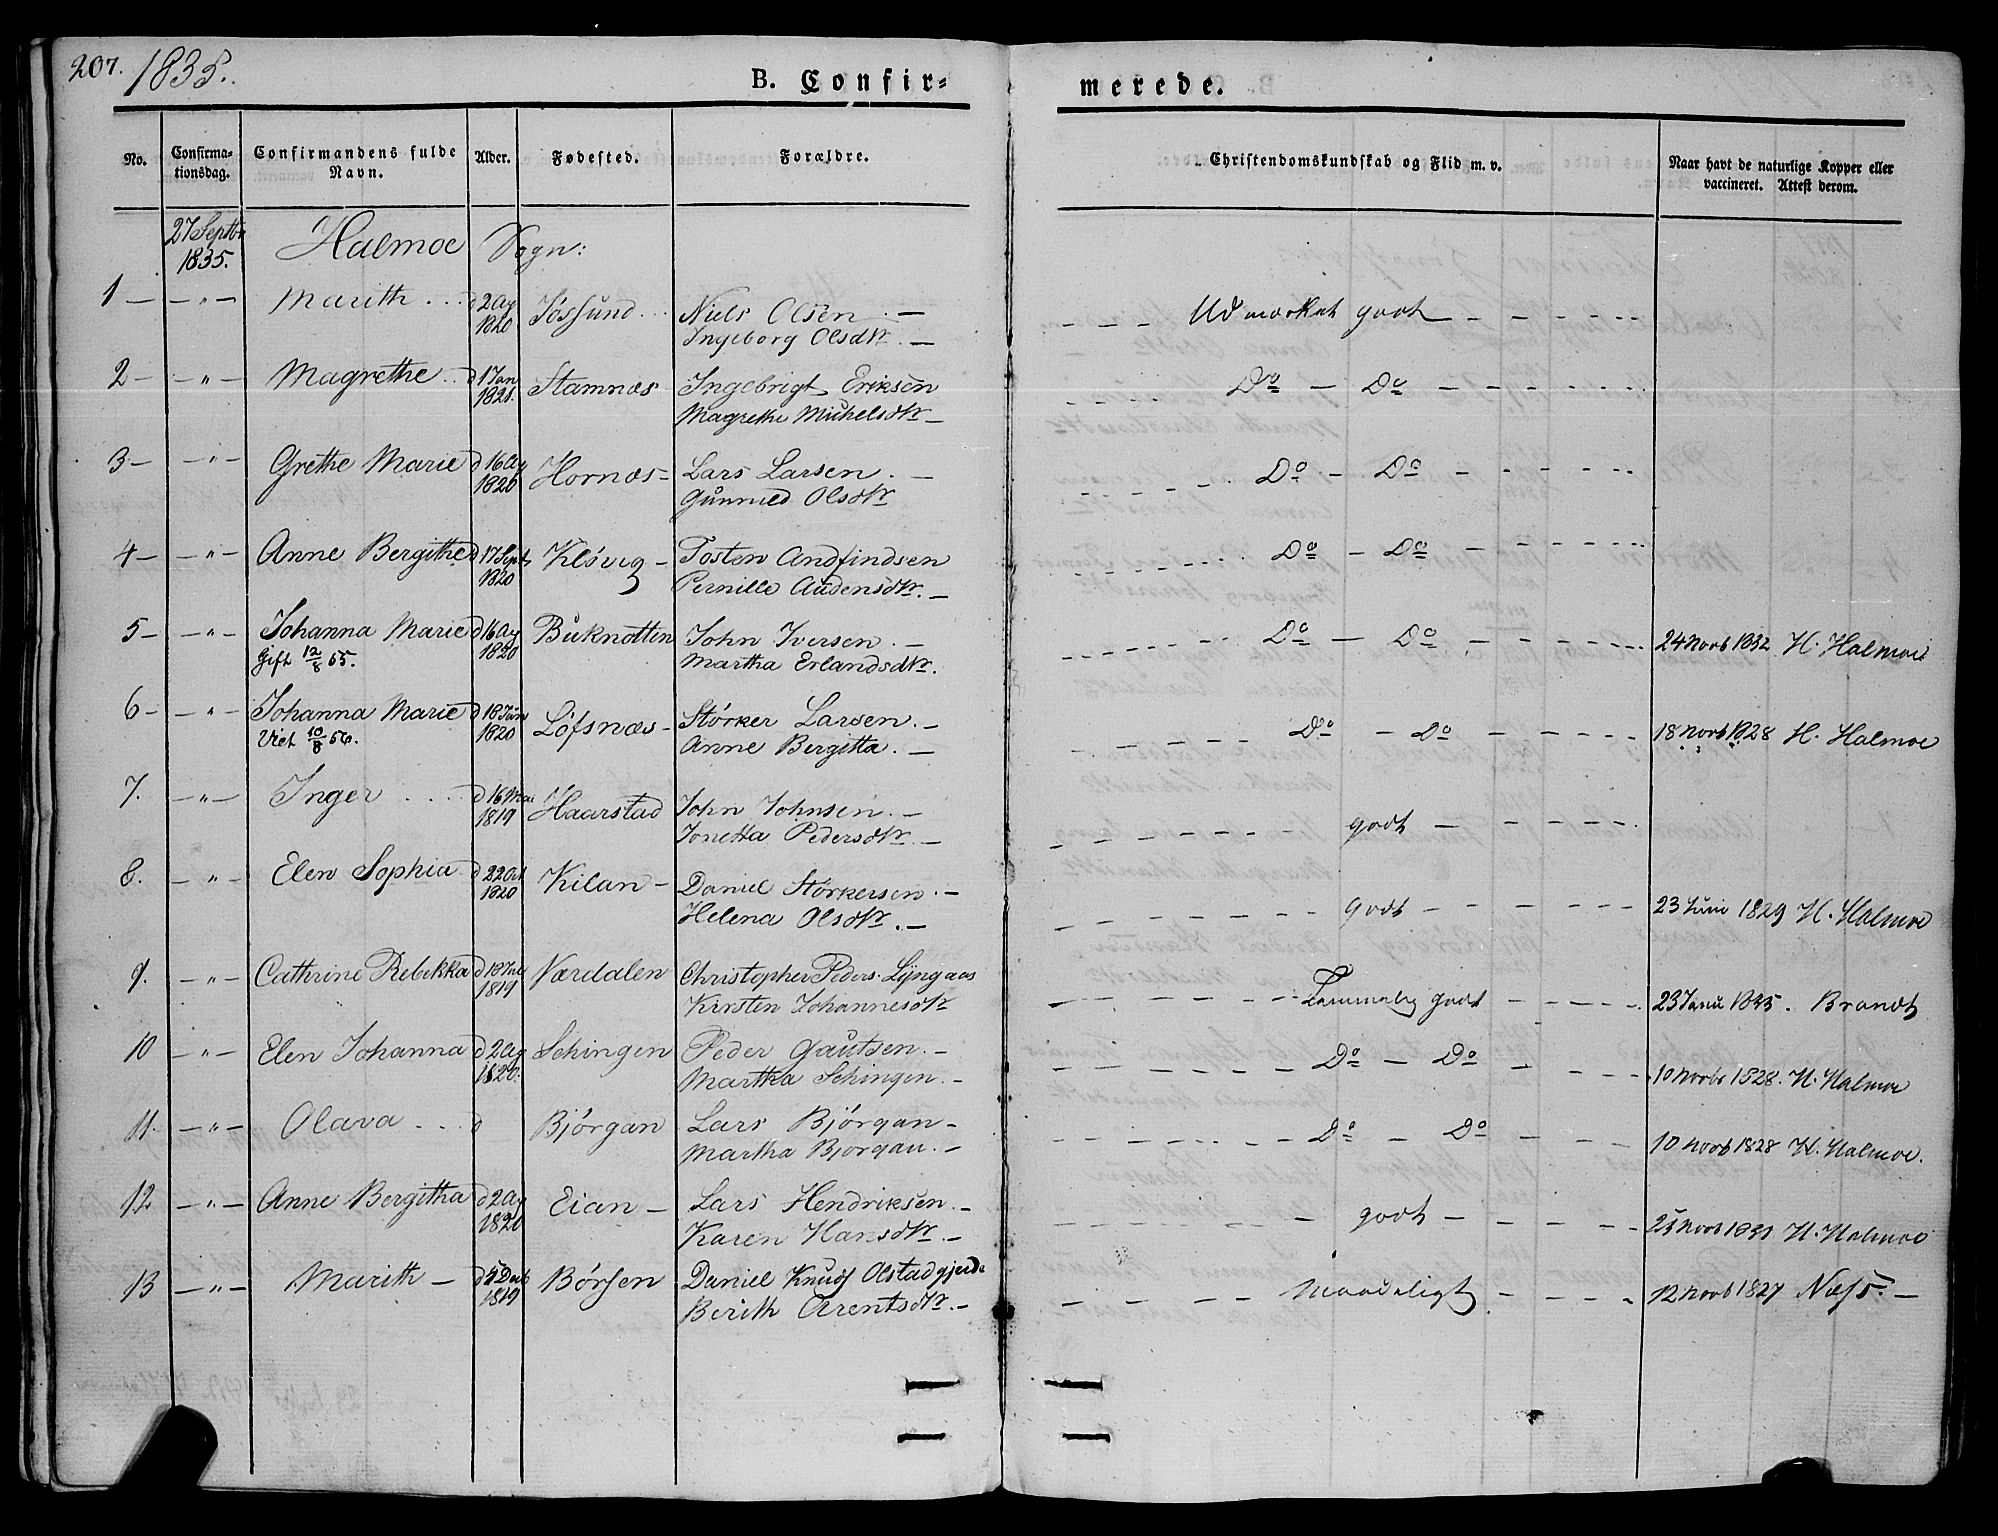 207. 1835.
B. Confir=
merede.
No.
Confirma-
tionsdag.
Confirmandens fulde
Navn.
Alder.
Fødested.
Forældre.
Christendomskundskab og Flid m. v.
Naar havt de naturlige Kopper eller
vaccineret. Attest derom.
27 Septbr
1835.
Halmoe Sogn:
1 — — " — Marith . . . d 2 Aug Jøssund . . . Niels Olsen . — Udmærket godt
1820 Ingeborg Olsdtr . —
2 — — " — Magrethe . . d 17 Jan Stamnæs — Ingebrigt Eriksen Do — Do —
1821. Magrethe Michelsdtr —
3 — — " — Grethe Marie d 16 Aug Hornæs — Lars Larsen . — Do — Do —
1820 Gunnild Olsdtr
4 — — " — Anne Bergithe d 17 Sept Kløvig — Tosten Andfindsen Do — Do —
1820 Pernille Audensdtr. —
5 — — " — Johanna Marie d 16 Aug Buknotten John Iversen . — Do — Do 24 Novb 1832 H. Halmoe
Gift 12/8 55. 1820 Martha Erlandsdtr.
6 — — " — Johanna Marie d 18 Jun Løfsnæs — Størker Larsen . — Do — Do — 18 Novb 1828 H. Halmoe
Viet 10/8 56. 1820 Anne Bergitta . —
7. — " — Inger . . . . d 16 Mai Haarstad John Johnsen . — godt —
1819 Jonetta Pedersdtr . —
8. — " — Elen Sophia d 22 Oct Kilan — Daniel Størkersen . — godt — 23 Juni 1829 H. Halmoe
1820 Helena Olsdtr . —
9. — " — Cathrine Rebekka d 18 Værdalen Christopher Peders. Lÿngaas Temmelig godt 23 Janu 1835. Brandt
1819 Kirsten Johannesdtr
10 — " — Elen Johanna d 2 Aug Schingen Peder Gautsen . — Do — Do — 10 Novbr 1828. H. Halmoe
1820. Martha Schingen . —
11. — " — Olava . . . d Bjørgan Lars Bjørgan — Do — Do — 10 Novb 1828 H. Halmoe.
Martha Bjørgan . —
12 — " — Anne Bergitha d 2 Aug Eian — Lars Hendriksen . — godt — Novb H. Halmoe
1820 Karen Hansdtr . —
13 — " — Marith — d 5 Decb Børsen Daniel Knuds Olstadgjerde Maadeligt 12 Novb 1827 Næss. —
1819 Berith Arentsdtr . —